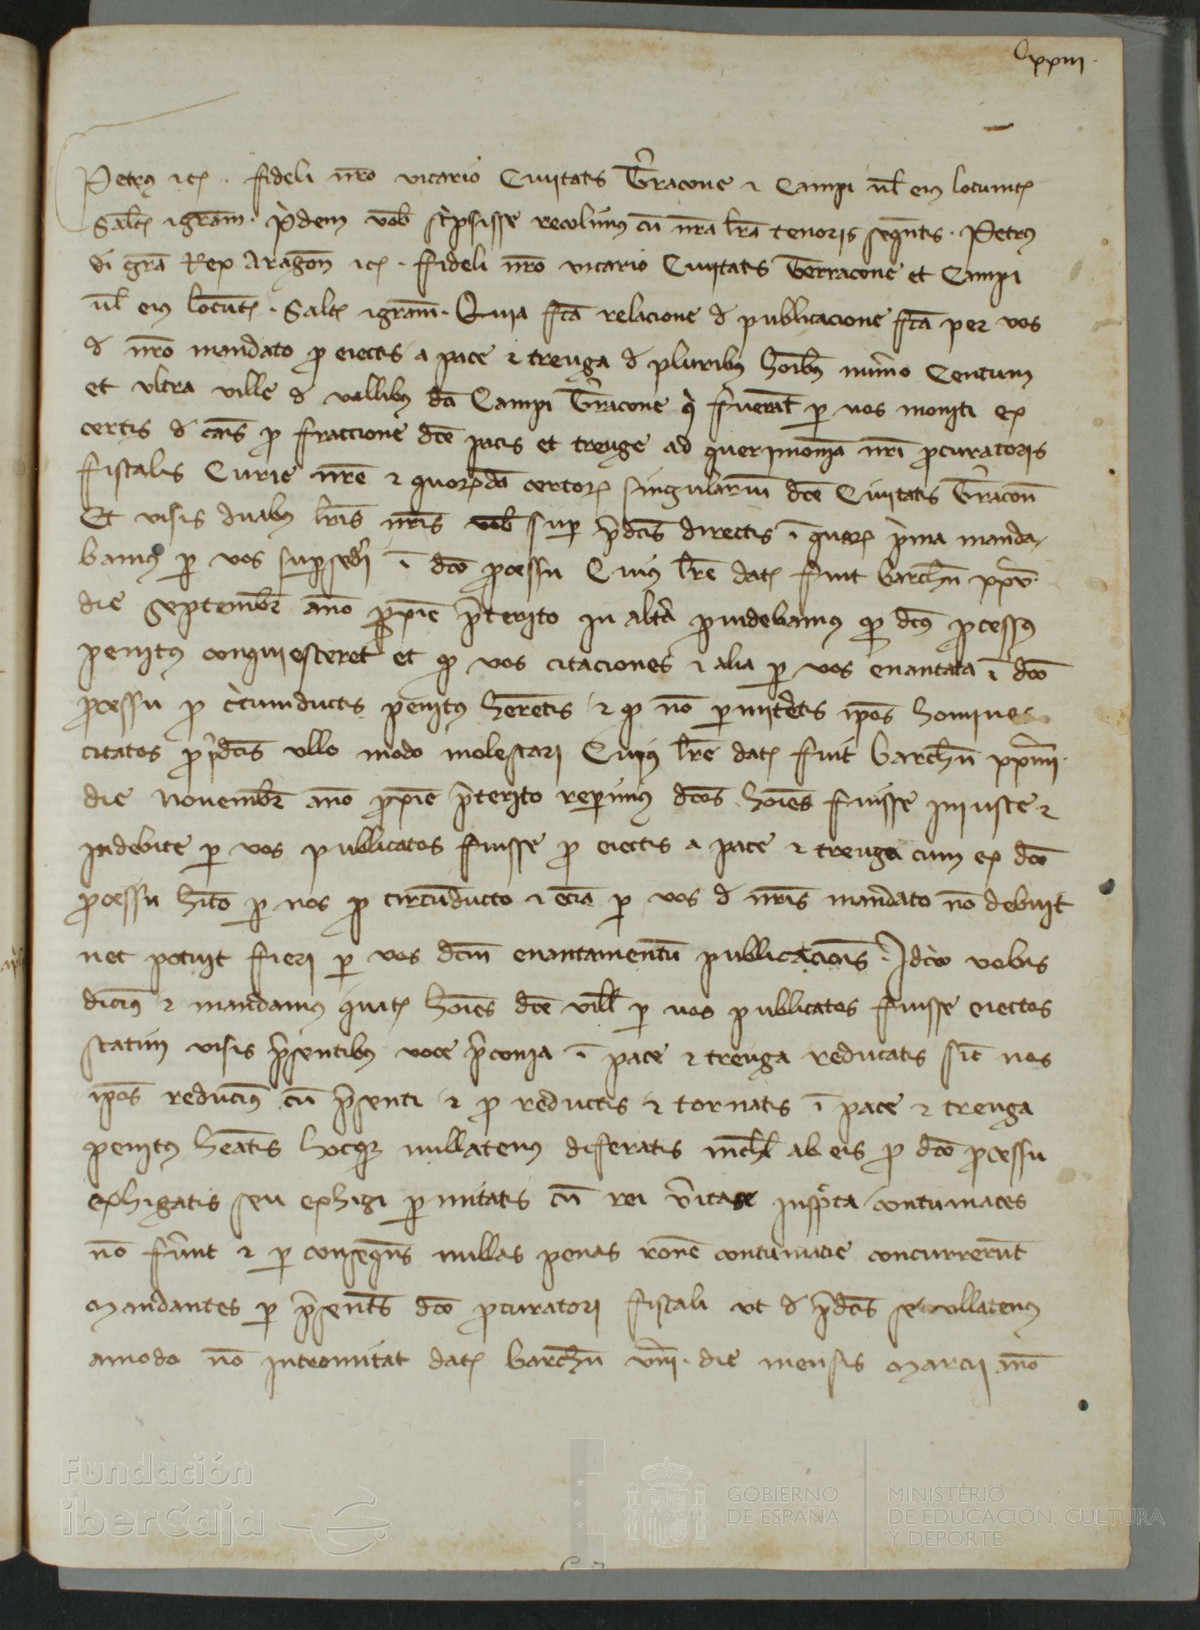 Cxxiii
Petrus etc. fideli nro vicario Civitatis Terracone et Campi vel eius locumten
Saltm et gram. pridem vob scripsisse recolimus cu nra lra tenoris sequentis. Petrus
di gra Rex Aragon etc. fideli nro vicario Civitatis Terracone et Campi
vel eius locumt. Saltm et gram. Quia fca relacione d publicacione fca per vos
d nro mandato pro eiectis a pace et treuga d pluribus hoibus numero Centum
et ultra ville d vallibus dci Campi Terracone qui fuerant per vos moniti ex
certis d causis pro fraccione dce pacis et treuge ad querimoniam nri procuratoris
fiscalis Curie nre et quorumda certorum singularium dce Civitatis Terracon
Et visis duabus lris nris vob super predcis directis i quarum prima manda
bamus per vos supersederi i dco processu Cuius lre dat fuit barchn xxv
die septembr anno proxime preterito in altera providebamus quod dcus processus
penitus conquiesceret et quod vos citaciones et alia per vos enantata i dco
processu pro circumductis penitus heretis et quod no permiteretis ipos homines
citatos pro predcis ullo modo molestari Cuius lre dat fuit barchn xxviiii
die Novembr anno proxime preterito reperimus dcos hoies fuisse iniuste et
indebite per vos publicatos fuisse pro eiectis a pace et treuga cum ex dco
processu hito per nos pro circunducto et ecia per vos d nris mandato no debuit
nec potuit fieri per vos dcm enantamentu publicacionis. Idcirco vobis
dicimus et mandamus quatenus hoies dce ville per vos publicatos fuisse eiectos
statim visis presentibus voce preconia i pace et treuga reducatis sic nos
ipos reducimus cu presenti et pro reductis et tornatis i pace et treuga
penitus heatis hocque nullatenus diferatis nichil ab eis pro dco processu
exhigatis seu exhigi permitatis cu rei veritate inspecta contumaces
no fuerint et per consequens nullas penas racione contumacie concurrerunt
Mandantes per presentes dco procuratori fiscali ut d predcis se ullatenus
amodo no intromitat dat barchn viiii die mensis Marcii anno
Fundación
iberCaja
GOBIERNO
DE ESPAÑA
MINISTERIO
DE EDUCACIÓN, CULTURA
Y DEPORTE